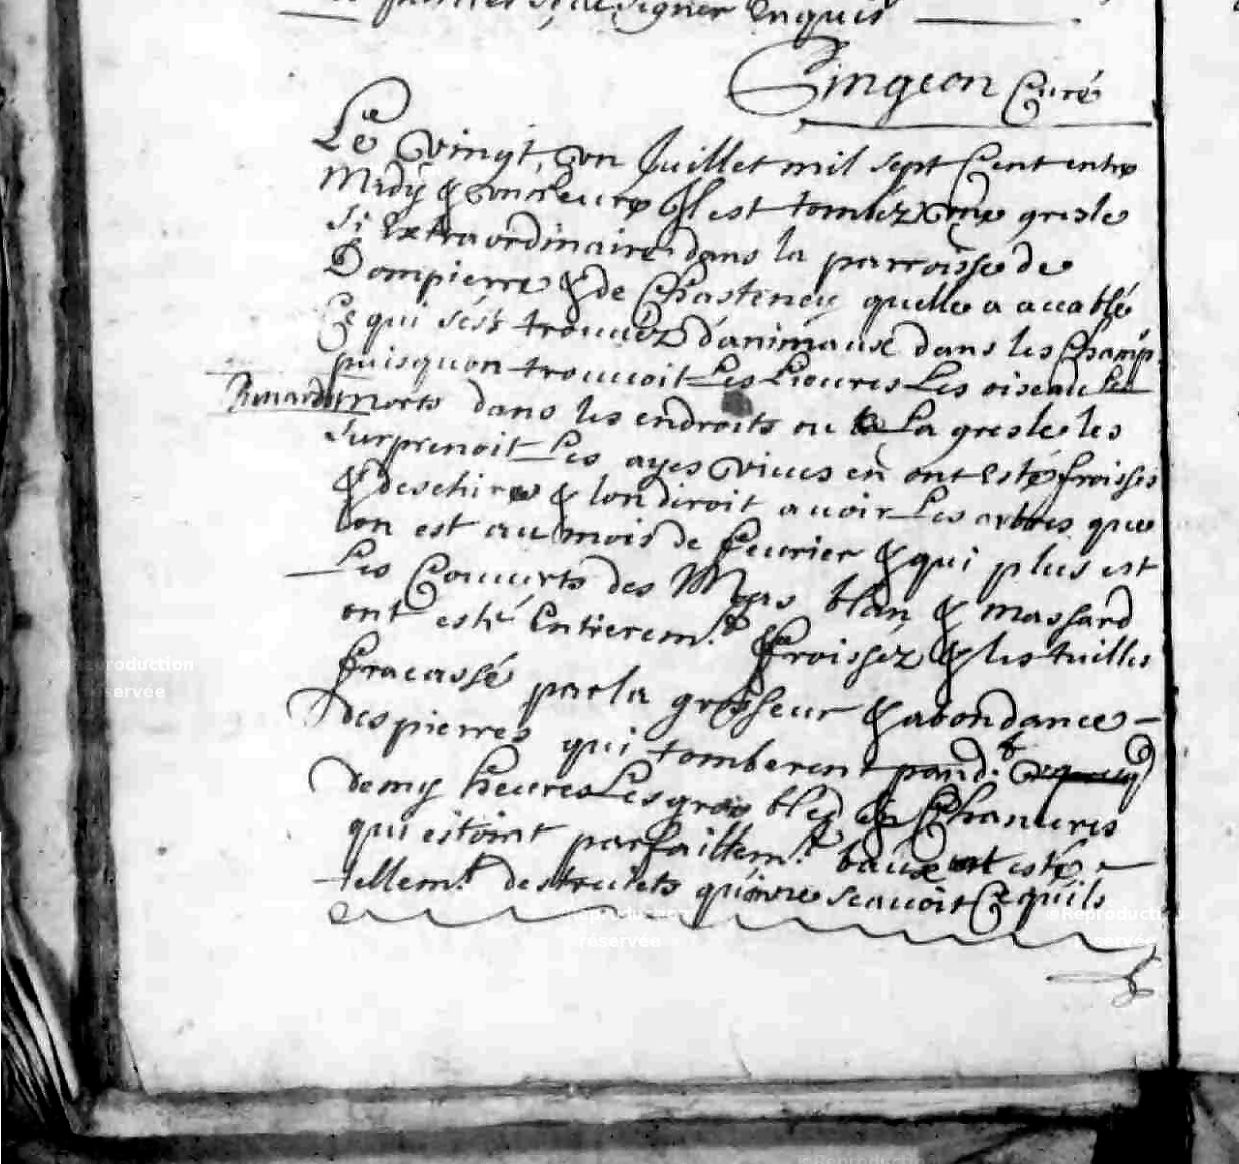 signer Enquis
Gingeon Curé
Le vingt, un Juillet mil sept Cent entre
Midy & une heure Il est tombéz une gresle
si Extraordinaire dans la parroisse de
Dompierre & de Chasteney quelle a accablé
Ce qui sést trouuéz d'animaux dans les Champ
puisquon trouuoit Les Lieures Les oiseau les
Renards morts dans les endroits ou La gresle les
surprenoit Les ayes viues en ont Esté froissés
& deschires & lon diroit a voir Les arbres que
lon est au mois de feurier & qui plus est
Les Couuerts des Moyas blan & Massard
ont esté Entierem.t froisséz & les tuilles
fracassé par la grosseur & abondance
des pierres qui tomberent pend.t
demy heures Les gros bled & Chanures
qui estoint parfaittem.t baux ont esté
tellem.t destruicts quon ne scauoit Ce quils